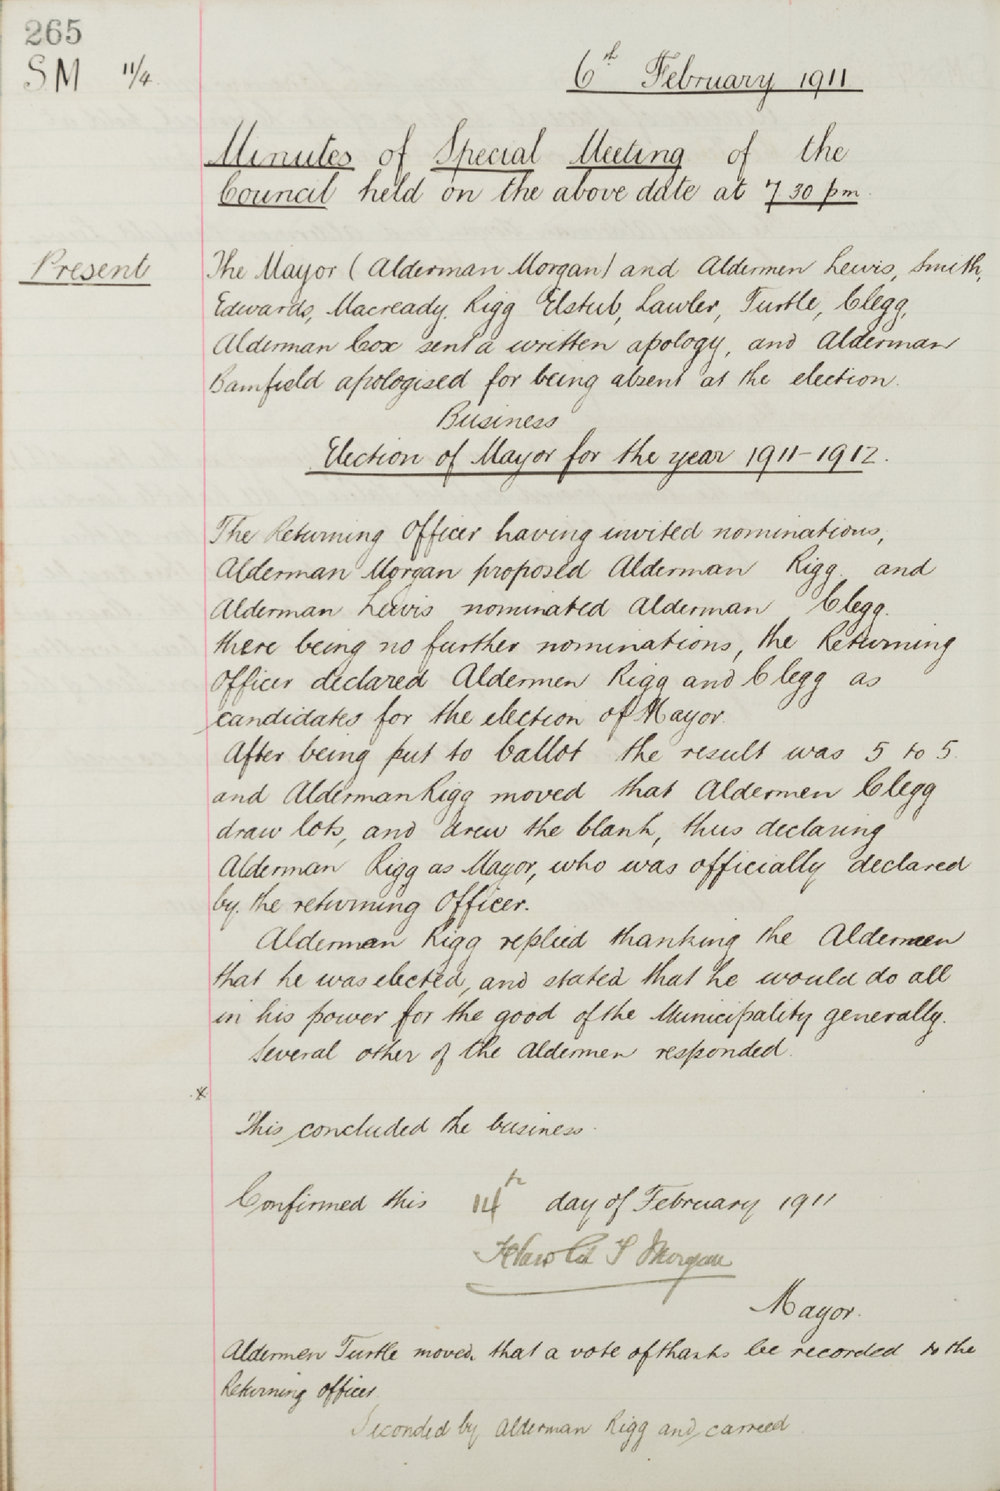 265
SM 11/4
6th February 1911
Minutes of Special Meeting of the
Council held on the above date at 7 30 pm.
Present
The Mayor (Alderman Morgan) and Aldermen Lewis, Smith,
Edwards, Macready. Rigg Elstub, Lawler, Turtle, Clegg,
Alderman Cox sent a written apology, and Alderman
Bamfield apologised for being absent at the election.
Business
Election of Mayor for the year 1911-1912.
The Returning Officer having invited nominations,
Alderman Morgan proposed Alderman Rigg. and
Alderman Lewis nominated Alderman Clegg.
there being no further nominations, the Returning
Officer declared Aldermen Rigg and Clegg as
candidates for the election of Mayor.
After being put to ballot the result was 5 to 5.
and Alderman Rigg moved that Aldermen Clegg
draw lots, and drew the blank, thus declaring
Alderman Rigg as Mayor, who was officially declared
by. the returning Officer.
Alderman Rigg replied thanking the Aldermen
that he was elected, and stated that he would do all
in his power for the good of the Municipality generally.
Several other of the Aldermen responded.
x
This concluded the business.
Confirmed this 14th day of February 1911
Harold S Morgan
Mayor.
Aldermen Turtle moved, that a vote of thanks be recorded to the
Returning officer.
Seconded by Alderman Rigg and carried